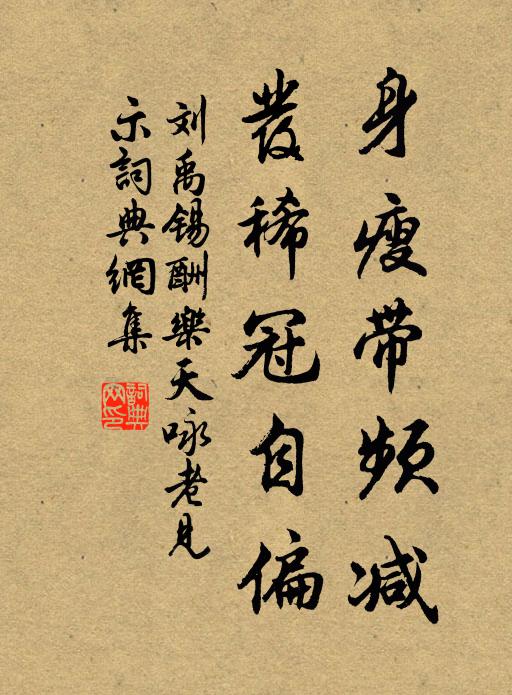 身瘦带频减
發稀冠自偏
刘禹锡酬樂天咏老見
示詞典網集
詞典網印